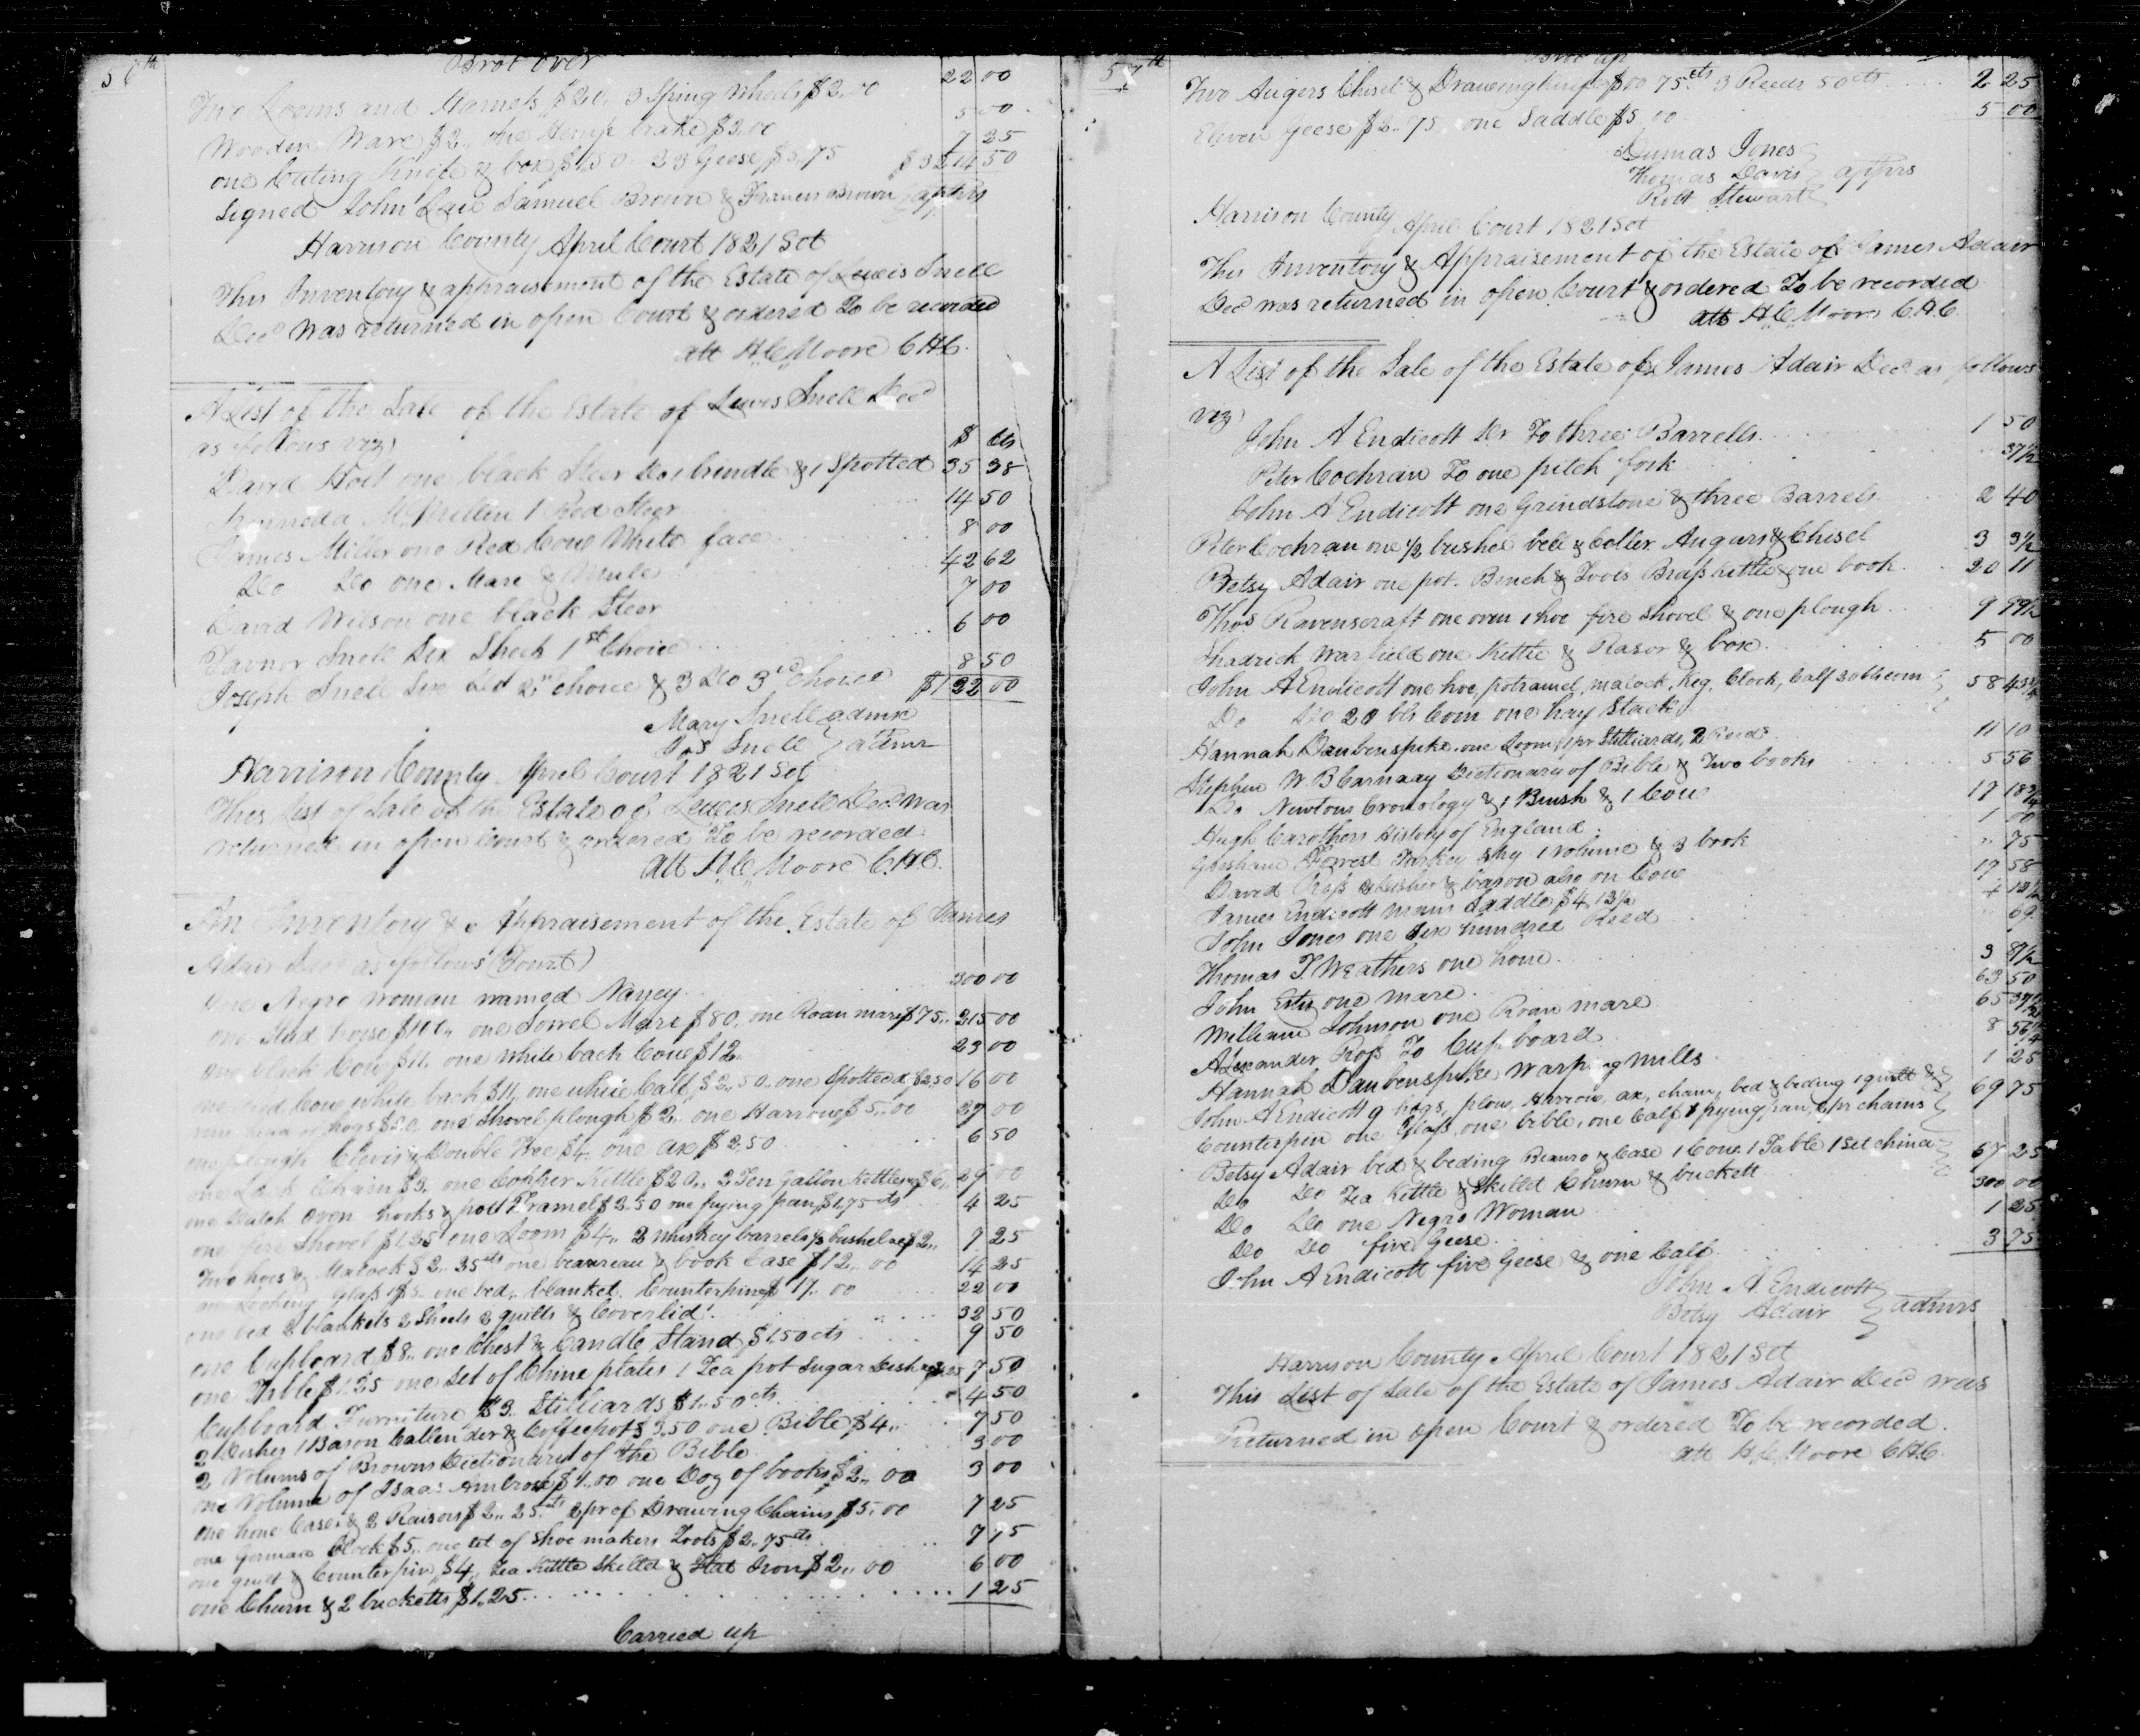 56th
Brot over
Two Looms and Harness $20,, 3 Spining Wheels $2,,00 22 00
Wooden Ware $2,, one Hemp brake $3,00 5 00
one Cutting Knife & box $1,50 23 Geese $5,75 7 25
Signed John Lail Samuel Brown & Francis Brown apprs $3214 50
Harrison County April Court 1821 Sct
This Inventory & appraisement of the Estate of Lewis Snell
Decd was returned in open Court & ordered To be recorded
Att H. C. Moore C.H.C.
A List of the Sale of the Estate of Lewis Snell Decd
as follows viz) $ Cts
David Holt one black Steer Do 1 brindle & 1 Spotted 35 38
McMillin 1 Red Steer 14 50
James Miller one Red Cow White face 8 00
Do Do one Mare & Mule 42 62
David Wilson one black Steer 7 00
Snell Six Sheep 1st Choice 6 00
Joseph Snell Six Do 2nd choice & 3 Do 3rd Choice 8 50
$122 00
Mary Snell admx
Jos Snell admr
Harrison County April Court 1821 Sct
This List of Sale of the Estate of Lewis Snell Decd was
returned in open Court & ordered To be recorded
Att H. C. Moore C.H.C.
An Inventory & Appraisement of the Estate of James
Adair Decd as follows (Towit)
One Negro woman named Nancy 300 00
one Stud horse one Sorrel Mare $80,, one Roan mare $75,, 215 00
one black Cow $11,, one white back Cow $12,, 23 00
one Red Cow white back $11,, one white Calf $2,,50 one Spotted d $2,50 16 00
nine head of hogs $20 one Shovel plough $2,, one Harrow $5,,00 27 00
one plough Clevis & Double Tree $4,, one ax $2,50 6 50
one Lock Chain $3,, one Copper Kettle $20,, 2 Ten Gallon Kettles $6,, 29 00
one Dutch Oven hooks & pott Tramel $2.50 one frying pan $1,75 cts 4 25
one fire Shovel $1,25 one Loom $4,, 2 whiskey barrels & ½ bushel $2,, 7 25
Two hoes & Matock $2,,25cts one beaureau & book Case $12,,00 14 25
one Looking Glass $5,, one bed, blanket, Counterpin $17,,00 22 00
one bed 2 blankets 2 Sheets 2 quilts & Coverlid 32 50
one Cupboard $8,, one Chest & Candle Stand $1.50 cts 9 50
one Table $1.25 one Set of Chine plates 1 Tea pot Sugar Dish 7 50
Cupboard Furniture $3. Stilliards $1,,50 cts 4 50
2 Dishes 1 Bason Callender & Coffeepot $3,50 one Bible $4,, 7 50
2 Volums of Browns Dictionary of the Bible 3 00
one Volume of Isaac Ambrose $1,,00 one Doz of books $2,,00 3 00
one hone Case & 2 Raisors $2,,25cts 2 pr of Drawing Chains $5,00 7 25
one German Clock $5,, one set of Shoe makers Tools $2,,75cts 7 75
one quilt & Counterpin $4,, Tea Kettle Skilled & Flat Iron $2,,00 6 00
one Churn & 2 bucketts $1,25 1 25
Carried up
57th
Brot up
Two Augers Chisel & Drawing knife $00 75cts 3 Reeds 50cts 2 25
Eleven Geese $2,,75 one Saddle $5 00 5 00
Dumas Jones
Thomas Davis apprs
Robt Stewart
Harrison County April Court 1821 Sct
This Inventory & Appraisement of the Estate of James Adair
Decd was returned in open Court & ordered To be recorded
Att H. C. Moore C.H.C.
A List of the Sale of the Estate of James Adair Decd as follows
viz)
John A Endicott Dr To three Barrells 1 50
Peter Cochran To one pitch fork 37½
John A Endicott one Grindstone & three Barrels 2 40
Peter Cochran one ½ bushel bell & Coller Augars & Chisel 3 31½
Betsy Adair one pot. Bench & Tools Brass Kettle & one book 20 11
Thos Ravenscraft one oven 1 hoe fire shovel & one plough 9 99½
Shadrick Warfield one Kettle & Rasor & box 5 00
John A Endicott one hoe, potramel, matock, Keg, Clock, Calf 58 43¾
Do Do 20 bls Corn one hay Stack
Hannah Daubenspike one Loom 1 pr Stilliards, 2 Reeds 11 10
Stephen W. B Carnaay Dictionary of Bible & Two books 5 56
Do Newtons Cronology & 1 Brush & 1 Cow 17 18¾
Hugh Carothers History of England 1 00
Gersham Forrest 1 volume & 3 book ,, 75
David Ross 2 dishes & bason also on Cow 17 58
James Endicott mans Saddle $4,13½ 4 13½
John Jones one Six hundred Reed 09
Thomas T. Weathers one hone 3 81½
John Estis one mare 63 50
William Johnson one Roan mare 65 37½
Alexander Ross To Cupboard 8 56¼
Hannah Daubenspike Warping mills 1 25
John A Endicott 9 hogs, plow, Harrow, ax, chain, bed & beding 1 quilt & 69 75
Counterpin one Glass, one bible, one Calf & frying pan, 1 pr chains
Betsy Adair bed & beding Beauro & Case 1 Cow 1 Table 1 Set china 67 25
Do Do Tea Kettle & Skillet Churn & buckett
Do Do one Negro Woman 300 00
Do Do five Geese 1 25
John A Endicott five Geese & one Calf 3 75
John A Endicott
Betsy Adair admrs
Harrison County April Court 1821 Sct
This List of Sale of the Estate of James Adair Decd was
Returned in open Court & ordered To be recorded.
att H. C. Moore C.H.C.